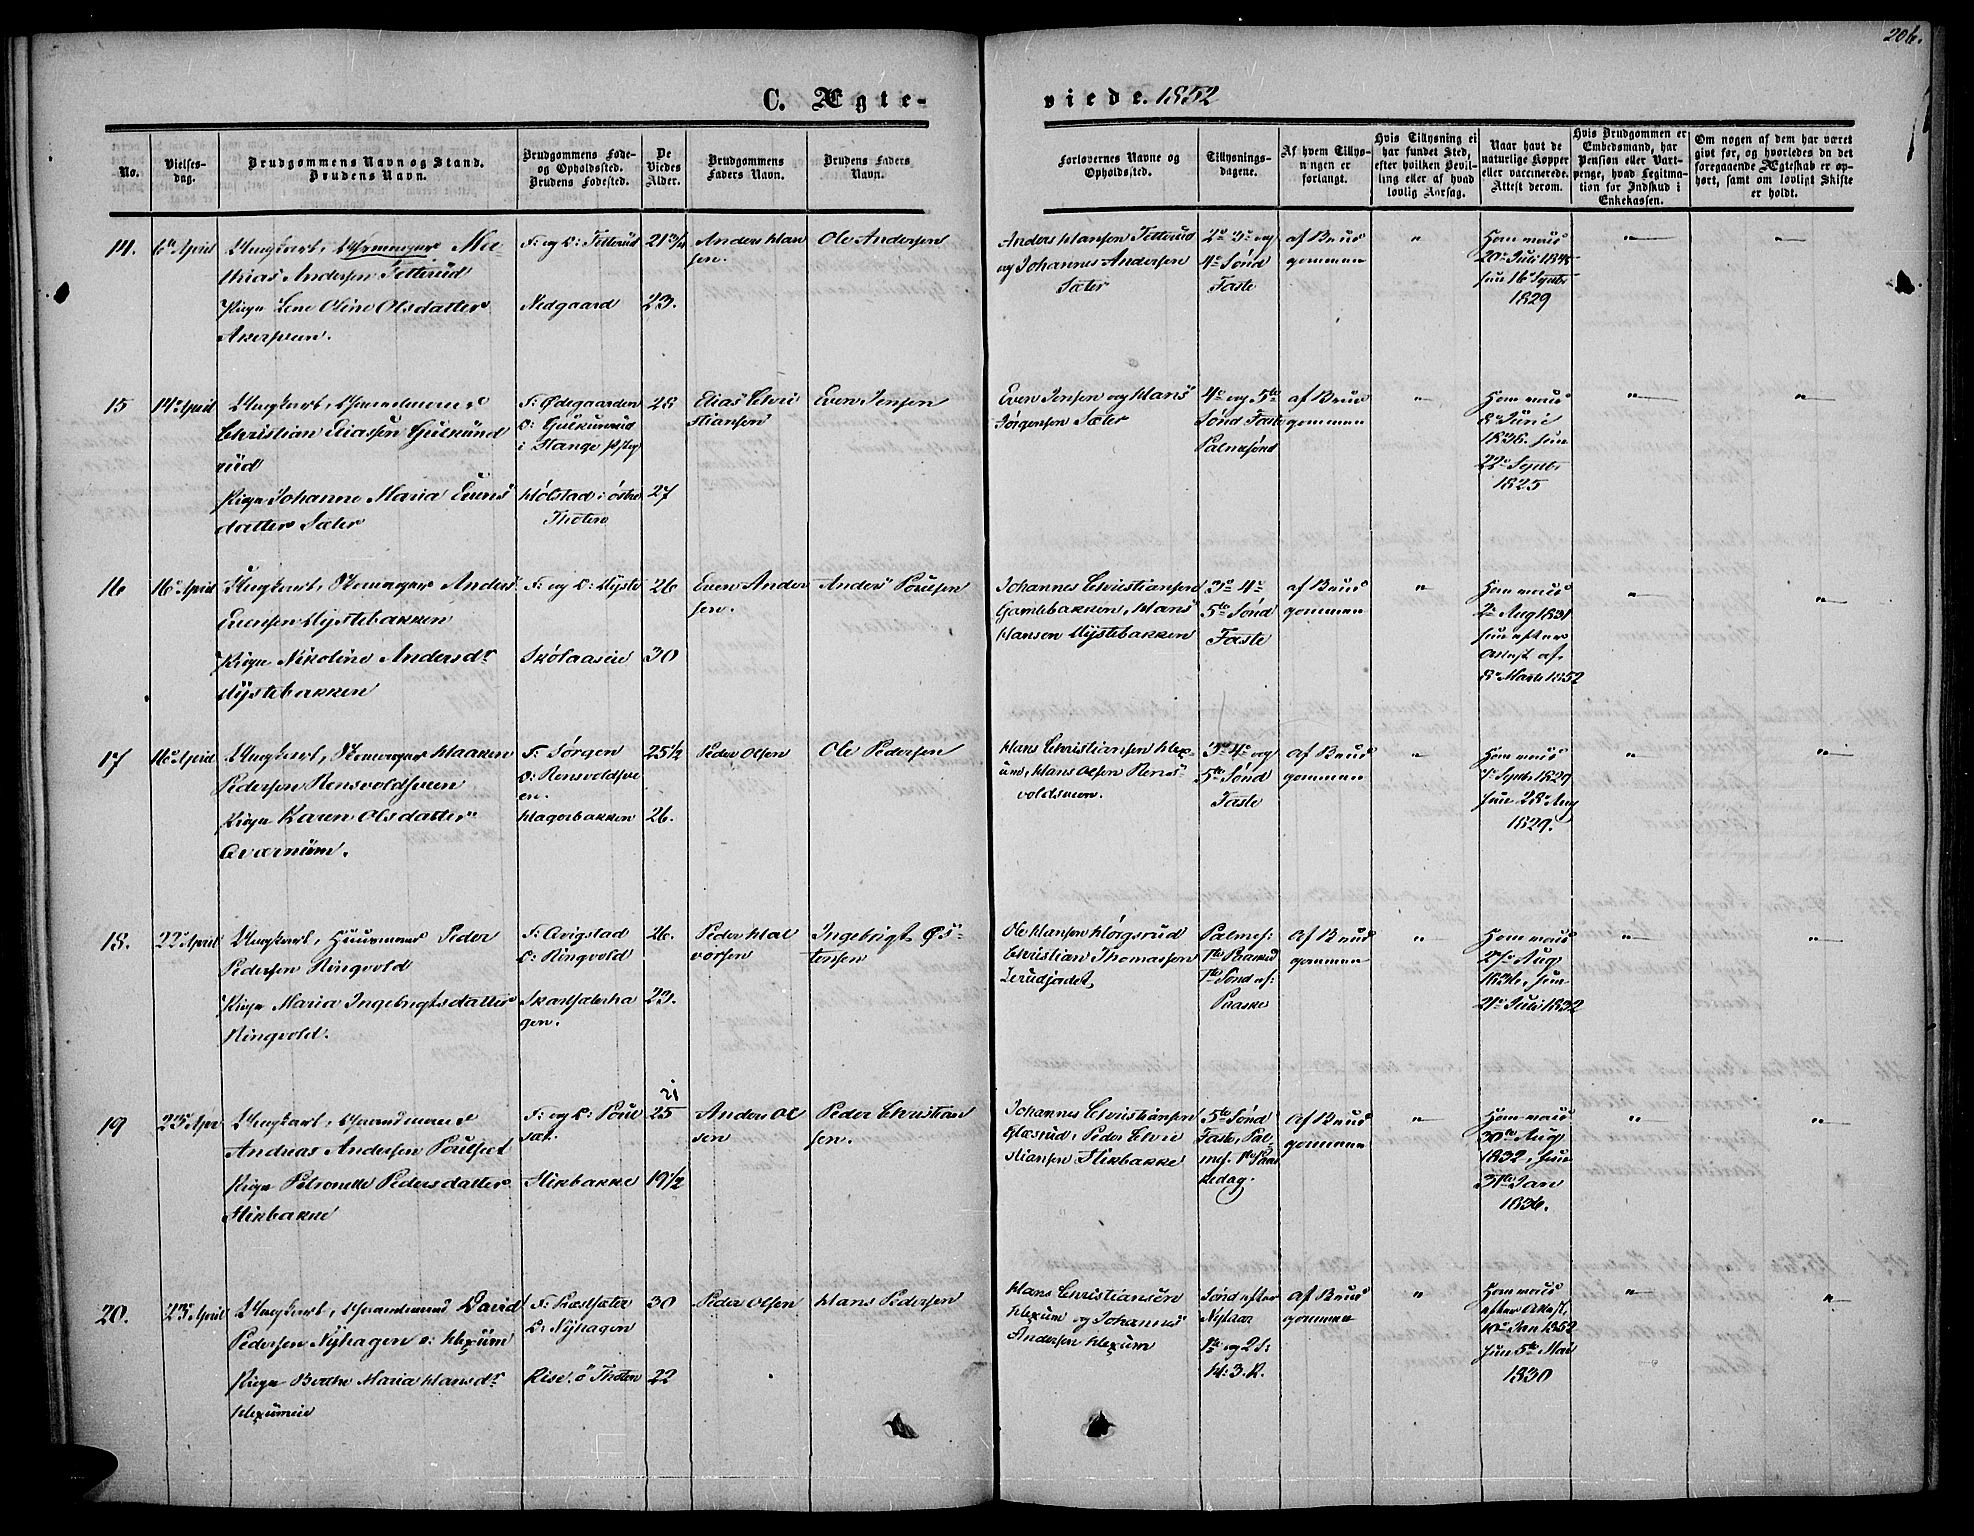 206.
C. Ægte-
viede. 1852
No.
Vielses-
dag.
Brudgommens Navn og Stand.
Brudens Navn.
Brudgommens Føde-
og Opholdssted.
Brudens Fødested.
De
Viedes
Alder.
Brudgommens
Faders Navn.
Brudens Faders
Navn.
Forlovernes Navne og
Opholdssted.
Tillysnings-
dagene.
Af hvem Tillys-
ningen er
forlangt.
Hvis Tillysning ei
har fundet Sted,
efter hvilken Bevil-
ling eller af hvad
lovlig Aarsag.
Naar havt de
naturlige Kopper
eller vaccinerede.
Attest derom.
Hvis Brudgommen er
Embedsmand, har
Pension eller Vart-
penge, hvad Legitima-
tion for Indskud i
Enkekassen.
Om nogen af dem har været
givt før, og hvorledes da det
foregaaende Ægteskab er op-
hørt, samt om lovligt Skifte
er holdt.
14. 6te April Ungkarl, Ma-
thias Andersen Tetterud
Pige Lene Oline Olsdatter
F: og O: Tetterud
Nedgaard
21 3/4
23.
Anders Han
sen.
Ole Andersen
Anders Hansen Tetterud
og Johannes Andersen
Sæter
2de 3de og
4de Sønd
Faste
af Brud
gommen
"
Ham vacc
20de Juli
hun 16de Septbr
1829
"
"
15 14de April Ungkarl, Gaardmand
Christian Eliassen Gulkund
rud
Pige Johanne Maria Evens
datter Sæter
F: Ødegaarden
O: Gulkunrud
i Stange
Hølstad i østre
Thoten
28
27
Elias Chri
stiansen
Even Jensen
Even Jensen og Hans
Jørgensen Sæter
4de og 5te
Sønd Faste
Palmesønd
af Brud
gommen
"
Ham vacc
8de Juni
1836. hun
22de Septbr
1825
"
"
16 16de April Ungkarl, Skomager Anders
Evensen Myhstebakken
Pige Nikoline Andersdr
26
30
Even Ander
sen.
Anders Poulsen
Johannes Christiansen
Gamlebakken, Hans
Hansen
3de 4de
5te Sønd
Faste
af Brud
gommen
"
Ham vacc
2de Aug 1831
hun efter
Attest af
8de Marts 1852
"
"
17 16de April Ungkarl, Skomager Haaken
Pedersen Rensvoldsveen
Pige Karen Olsdatter
Qværnum.
F: Sørgen
O: Rensvoldsve
en.
Hagerbakken
25 1/2
26.
Peder Olsen
Ole Pedersen
Hans Christiansen Hex-
um, Hans Olsen Rens-
voldsveen.
3de 4de og
5te Sønd
Faste
Af Brud
gommen
"
Ham vacc
Septbr 1829
hun 28de Aug
1829.
"
"
18. 22de April Ungkarl, Huusmand Peder
Pedersen Ringvold
Pige Maria Ingebrigtsdatter
Ringvold.
F: Qvigstad
O: Ringvold
gen.
26.
23.
Peder Hal
vorsen
Ingebrigt Øs-
tensen
Ole Hansen Hørgsrud
Christian Thomassen
Lerudjordet,
Palmes:
1te Paasked
1te Sønd ef:
Paaske
Af Brud
gommen
"
Ham vacc
27de Aug
1836, hun
21de Juli 1832
"
"
19 23de Apr Ungkarl, Gaardmand
Andreas Andersen Poulset
Pige Petronelle Pedersdatter
Stikbakke
F: og O: Poul
set.
Stikbakke
21
25
19 1/2
Anders Ol
sen
Peder Christian
sen.
Johannes Christiansen
Glæsrud, Peder Chri
stiansen Stikbakke
5te Sønd
Faste, Pal-
mes. 1te Paas
kedag.
Af Brud
gommen
"
Ham vacc
30te Aug
1832, hun
31te Jan
1836.
"
"
20. 23de April Ungkarl, Gaardmand David
Pedersen Nyhagen v: Hexum
Pige Berthe Maria Hansdr
Hexumeie
F: Præstsæter
O: Nyhagen
Rise. ø Thoten
30
22
Peder Olsen
Hans Pedersen
Hans Christiansen
Hexum og Johannes
Andersen Hexum
Sønd efter
Nytaar
1te og 2 S:
H: 3. K.
Af Brud
gommen
"
Ham vacc
efter Attest,
Jan 1852
hun 5te Mai
1830
"
"